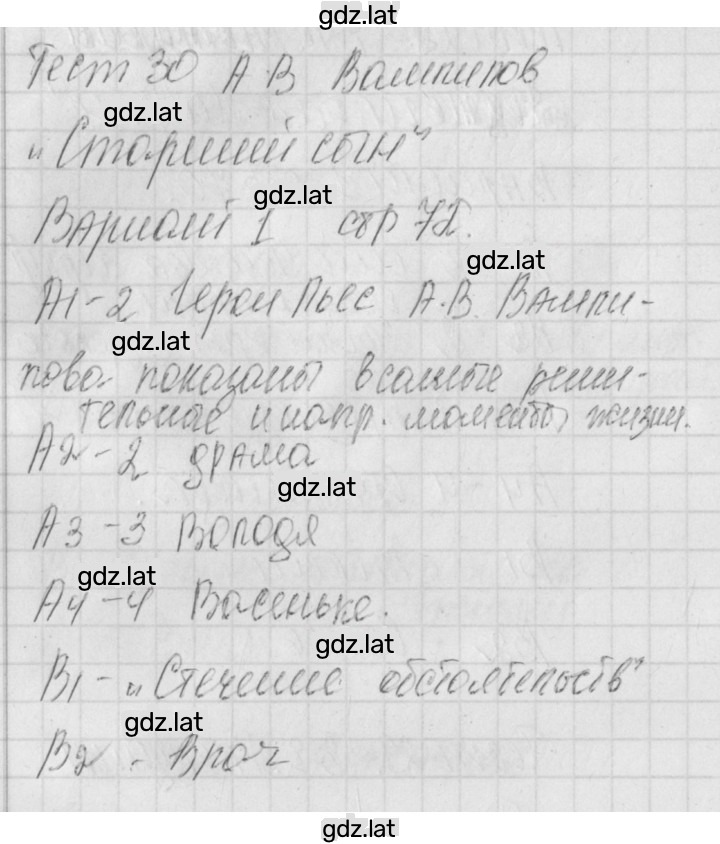 gdz.lat
Тест 30 А.В Вампилов
gdz.lat
„Старший сын"
gdz.lat
Вариант 1 стр 72.
gdz.lat
А1-2 Герои Пьес А.В. Вампи-
gdz.lat
лова показаны в самые реши-
тельные и напр. моменты жизни.
А2-2 драма
gdz.lat
А3-3 Володя
gdz.lat
А4-4 Васеньке.
gdz.lat
В1-„Стечение обстоятельств"
gdz.lat
В2 - Врач
gdz.lat